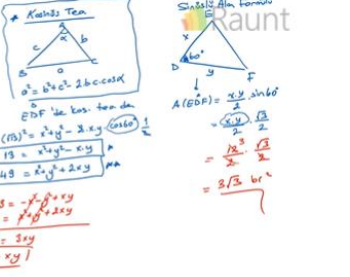 * Kosinüs Teo
A
α
c
b
B
a
C
a² = b² + c² - 2.b.c.cosα
EDF 'de kos. teo. da
(√13)² = x² + y² - 2.xy.cos60° 1/2
13 = x² + y² - xy *
49 = x² + y² + 2xy **
= -x² - y² + xy
= x² + y² + 2xy
= 3xy
xy
Sinüslü Alan formülü
Raunt
E
x
60°
D
y
F
A(EDF) = x.y/2 . sin60°
= x.y/2 . √3/2
= 12³/2 . √3/2
= 3√3 br²